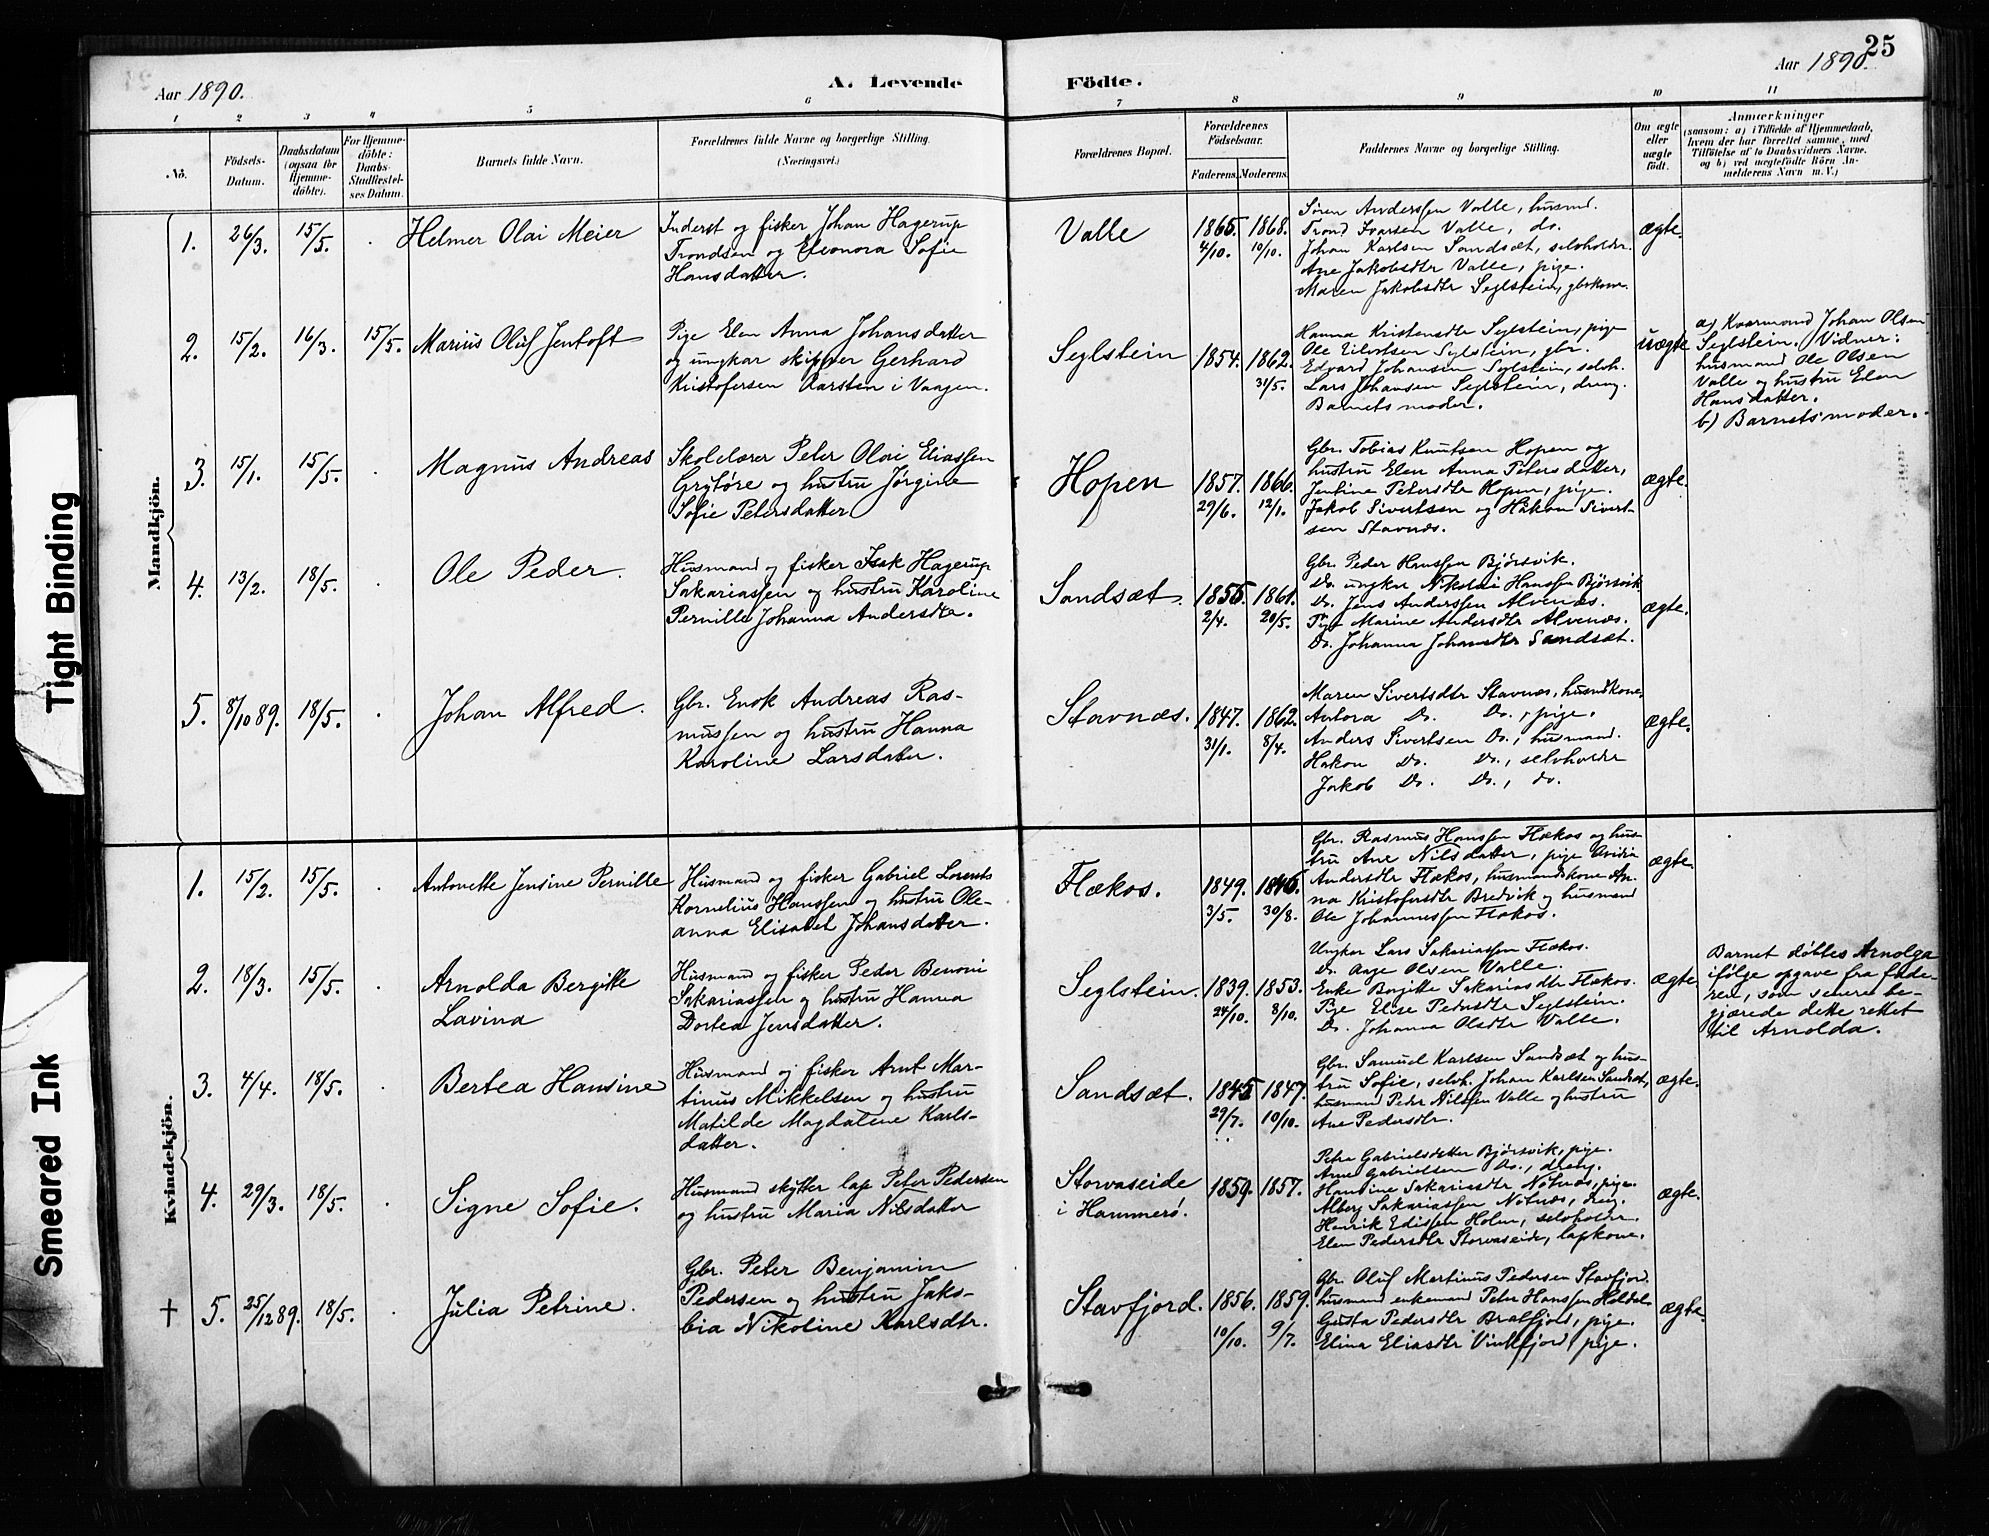 25
Aar 1890.
A. Levende
Födte.
Aar 1890.
1 2 3 4 5 6 7 8 9 10 11
No.
Födsels-
Datum.
Daabsdatum
(ogsaa for
Hjemme-
döbte).
For Hjemme-
döbte:
Daabs-
Stadfæstel-
ses Datum.
Barnets fulde Navn.
Forældrenes fulde Navne og borgerlige Stilling.
(Næringsvei.)
Forældrenes Bopæl.
Forældrenes
Födselsaar.
Faderens. Moderens.
Faddernes Navne og borgerlige Stilling.
Om ægte
eller
uægte
födt.
Anmærkninger
(saasom: a) i Tilfælde af Hjemmedaab,
hvem der har forrettet samme, med
Tilföielse af to Daabsvidners Navne.
og b) ved uægtefödte Börn An-
melderens Navn m. V.)
Mandkjön.
1. 26/3. 15/5. Helmer Olai Meier
Inderst og fisker Johan Hagerup
Trondsen og Eleonora Sofie
Hansdatter.
Valle
1865. 1868.
4/10. 10/10.
Søren Anderssen Valle, husmd.
Trond Ivarsen Valle, do.
Johan Karlsen Sandsæt, selvholder.
Ane Jakobsdtr Valle, pige.
Maren Jakobsdtr Seglstein, gbrkone.
ægte.
2. 15/2. 16/3. 15/5. Marius Oluf Jentoft
Pige Elen Anna Johansdatter
og ungkar skipper Gerhard
Kristofersen Aarsten i Vaagen.
Seglstein
1854. 1862.
31/5.
Hanna Kristensdtr Seglstein, pige
Ole Eilertsen Seglstein, gbr.
Edvard Johansen Seglstein, selvh.
Lars Johansen Seglstein, dreng.
Barnets moder.
uægte
a) Kvarmand Johan Olsen
Seglstein. Vidner:
husmand Ole Olsen
Valle og hustru Elen
Hansdatter.
b) Barnets moder.
3. 15/1. 15/5. Magnus Andreas
Skolelærer Peter Olai Eliassen
Grytøre og hustru Jørgine
Sofie Petersdatter
Hopen
1857. 1866.
29/6. 12/1.
Gbr. Tobias Knutsen Hopen og
hustru Elen Anna Petersdatter,
Jentine Petersdtr Hopen, pige.
Jakob Sivertsen og Håkon Sivert-
sen Stavnæs.
ægte.
4. 13/2. 18/5. Ole Peder.
Husmand og fisker Isak Hagerup
Sakariassen og hustru Karoline
Pernille Johanna Andersdtr.
Sandsæt.
1855. 1861.
2/4. 20/5.
Gbr. Peder Hanssen Bjørsvik.
Do. ungkar Nikolai Hanssen Bjørsvik
Do. Jens Anderssen Alvenæs.
Pige Marine Andersdtr Alvenæs.
Do. Johanna Johansdtr Sandsæt.
ægte.
5. 8/10 89. 18/5. Johan Alfred.
Gbr. Enok Andreas Ras-
mussen og hustru Hanna
Karoline Larsdatter.
Stavnæs.
1847. 1862.
31/1. 8/4.
Maren Sivertsdtr Stavnæs, husmdkone.
Antora Do. Do., pige.
Anders Sivertsen Do., husmand.
Hakon Do. Do., selvholder
Jakob Do. Do., do.
ægte.
Kvindekjön.
1. 15/2. 15/5. Antonette Jensine Pernille
Husmand og fisker Gabriel Lorents
Kornelius Hanssen og hustru Ole-
anna Elisabet Johansdatter.
Flækos.
1849. 1846.
3/5. 30/8.
Gbr. Rasmus Hanssen Flækos og hus-
tru Ane Nilsdatter, pige Ovidia
Andersdtr Flækos, husmandskone An-
na Kristofersdtr Bredvik og husmand
Ole Johannessen Flækos.
ægte.
2. 18/3. 15/5. Arnolda Bergitte
Lavina
Husmand og fisker Peder Benoni
Sakariassen og hustru Hanna
Dortea Jensdatter.
Seglstein.
1839. 1853.
24/10. 8/10.
Ungkar Lars Sakariassen Flækos.
Do. Aage Olsen Valle.
Enke Bergitte Sakariasdtr Flækos.
Pige Elise Pedersdtr Seglstein.
Do. Johanna Olsdtr Valle.
ægte.
Barnet døbtes Arnolga
ifølge opgave fra fade-
ren, som senere be-
gjærede dette rettet
til Arnolda.
3. 4/4. 18/5. Bertea Hansine
Husmand og fisker Arnt Mar-
tinus Mikkelsen og hustru
Matilde Magdalene Karls-
datter.
Sandsæt.
1845 1847.
29/7. 10/10.
Gbr. Samuel Karlsen Sandsæt og hus-
tru Sofie, selvh. Johan Karlsen Sandsæt,
husmand Peder Nilssen Valle og hustru
Ane Pedersdtr.
ægte.
4. 29/3. 18/5. Signe Sofie.
Husmand skytter lap Peter Pedersen
og hustru Maria Nilsdatter
Storvaseide
i Hammerø.
1859. 1857.
Petra Gabrielsdatter Bjørsvik, pige.
Arne Gabrielsen Do., dreng.
Hansine Sakariasdtr Notnæs, pige.
Alberg Sakariassen Notnæs, dreng.
Henrik Edissen Holm, selvholder.
Elen Pedersdtr Storvaseide, lapkone.
ægte.
† 5. 25/12 89. 18/5. Julia Petrine.
Gbr. Peter Benjamin
Pedersen og hustru Jako-
bia Nikoline Karlsdtr.
Stavfjord.
1856. 1859.
10/10. 9/7.
Gbr. Oluf Martinus Pedersen Stavfjord.
husmand enkemand Peter Hanssen Heldal
Gusta Pedersdtr Bratfjord, pige.
Elina Eliasdtr Vinkfjord, pige.
ægte.
Tight Binding
Smeared Ink